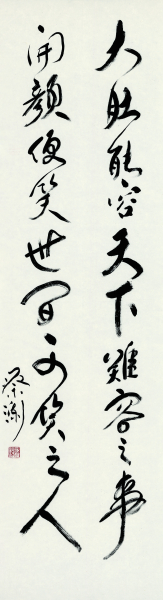 大肚能容天下難容之事
開顏便笑世間可笑之人
蔡瀾